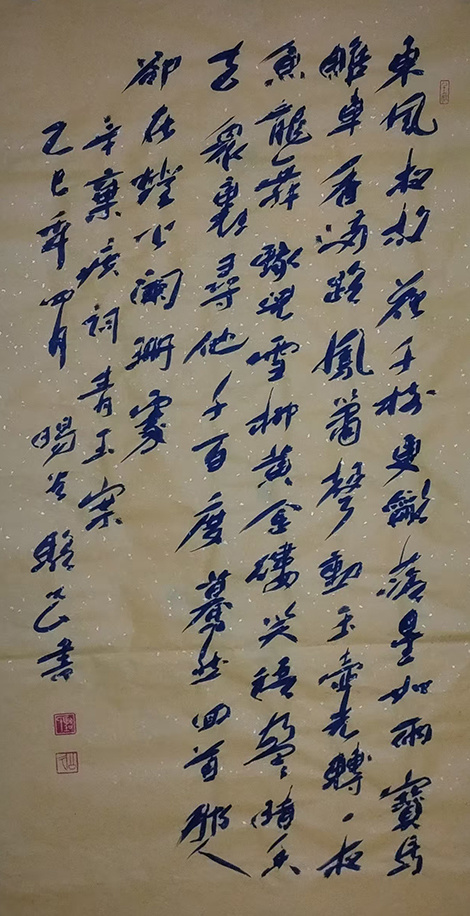 東風夜放花千樹更龡落星如雨寶馬
雕車香滿路鳳蕭聲動玉壺光轉一夜
魚龍舞蛾兒雪柳黄金縷笑語盈盈暗香
去衆裏尋他千百度驀然回首那人
卻在燈火阑珊處
辛棄疾詞青玉案
乙巳年四月暘谷書